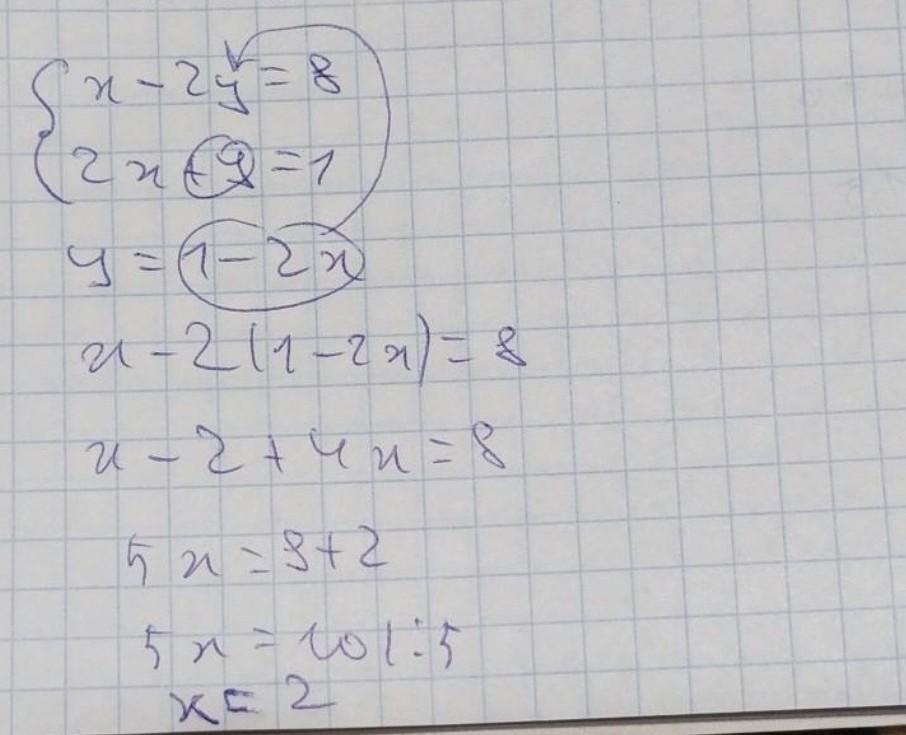 { x - 2y = 8
2x + y = 1
y = 1 - 2x
x - 2(1 - 2x) = 8
x - 2 + 4x = 8
5x = 8 + 2
5x = 10 | : 5
x = 2